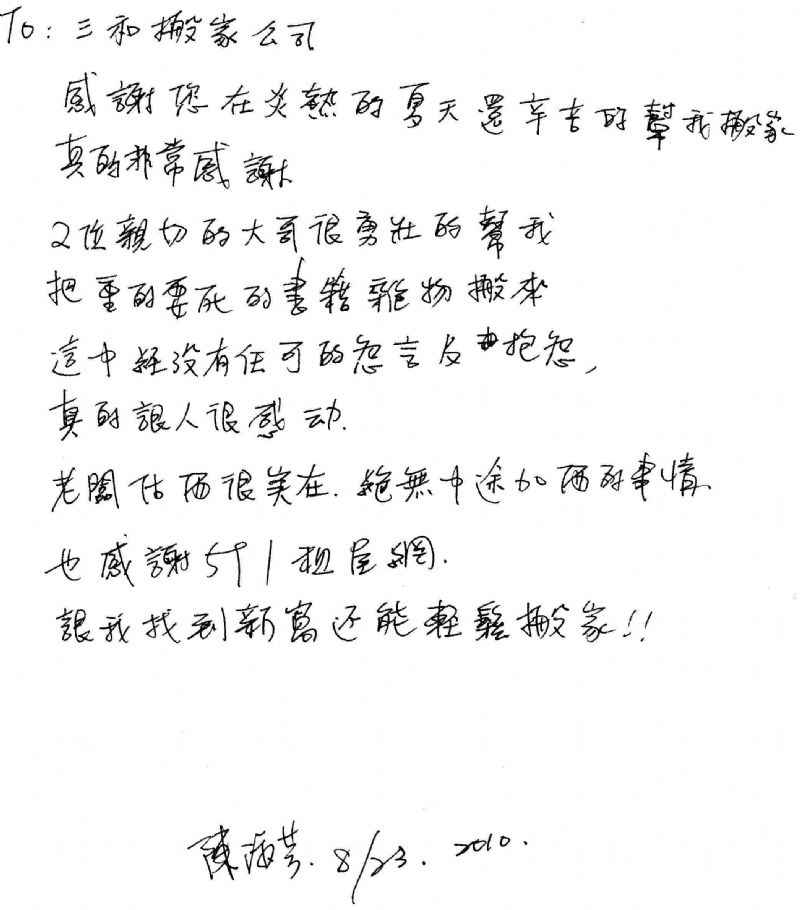 To: 三和搬家公司
感謝您在炎熱的夏天還辛苦的幫我搬家
真的非常感謝
2位親切的大哥很勇壯的幫我
把重的要死的書籍雜物搬來
這中經沒有任可的怨言及抱怨,
真的讓人很感动.
老闆估價很实在.絕無中途加價的事情
也感謝591租屋網.
讓我找到新窩还能輕鬆搬家!!
陳淑芳. 8/23. 2010.